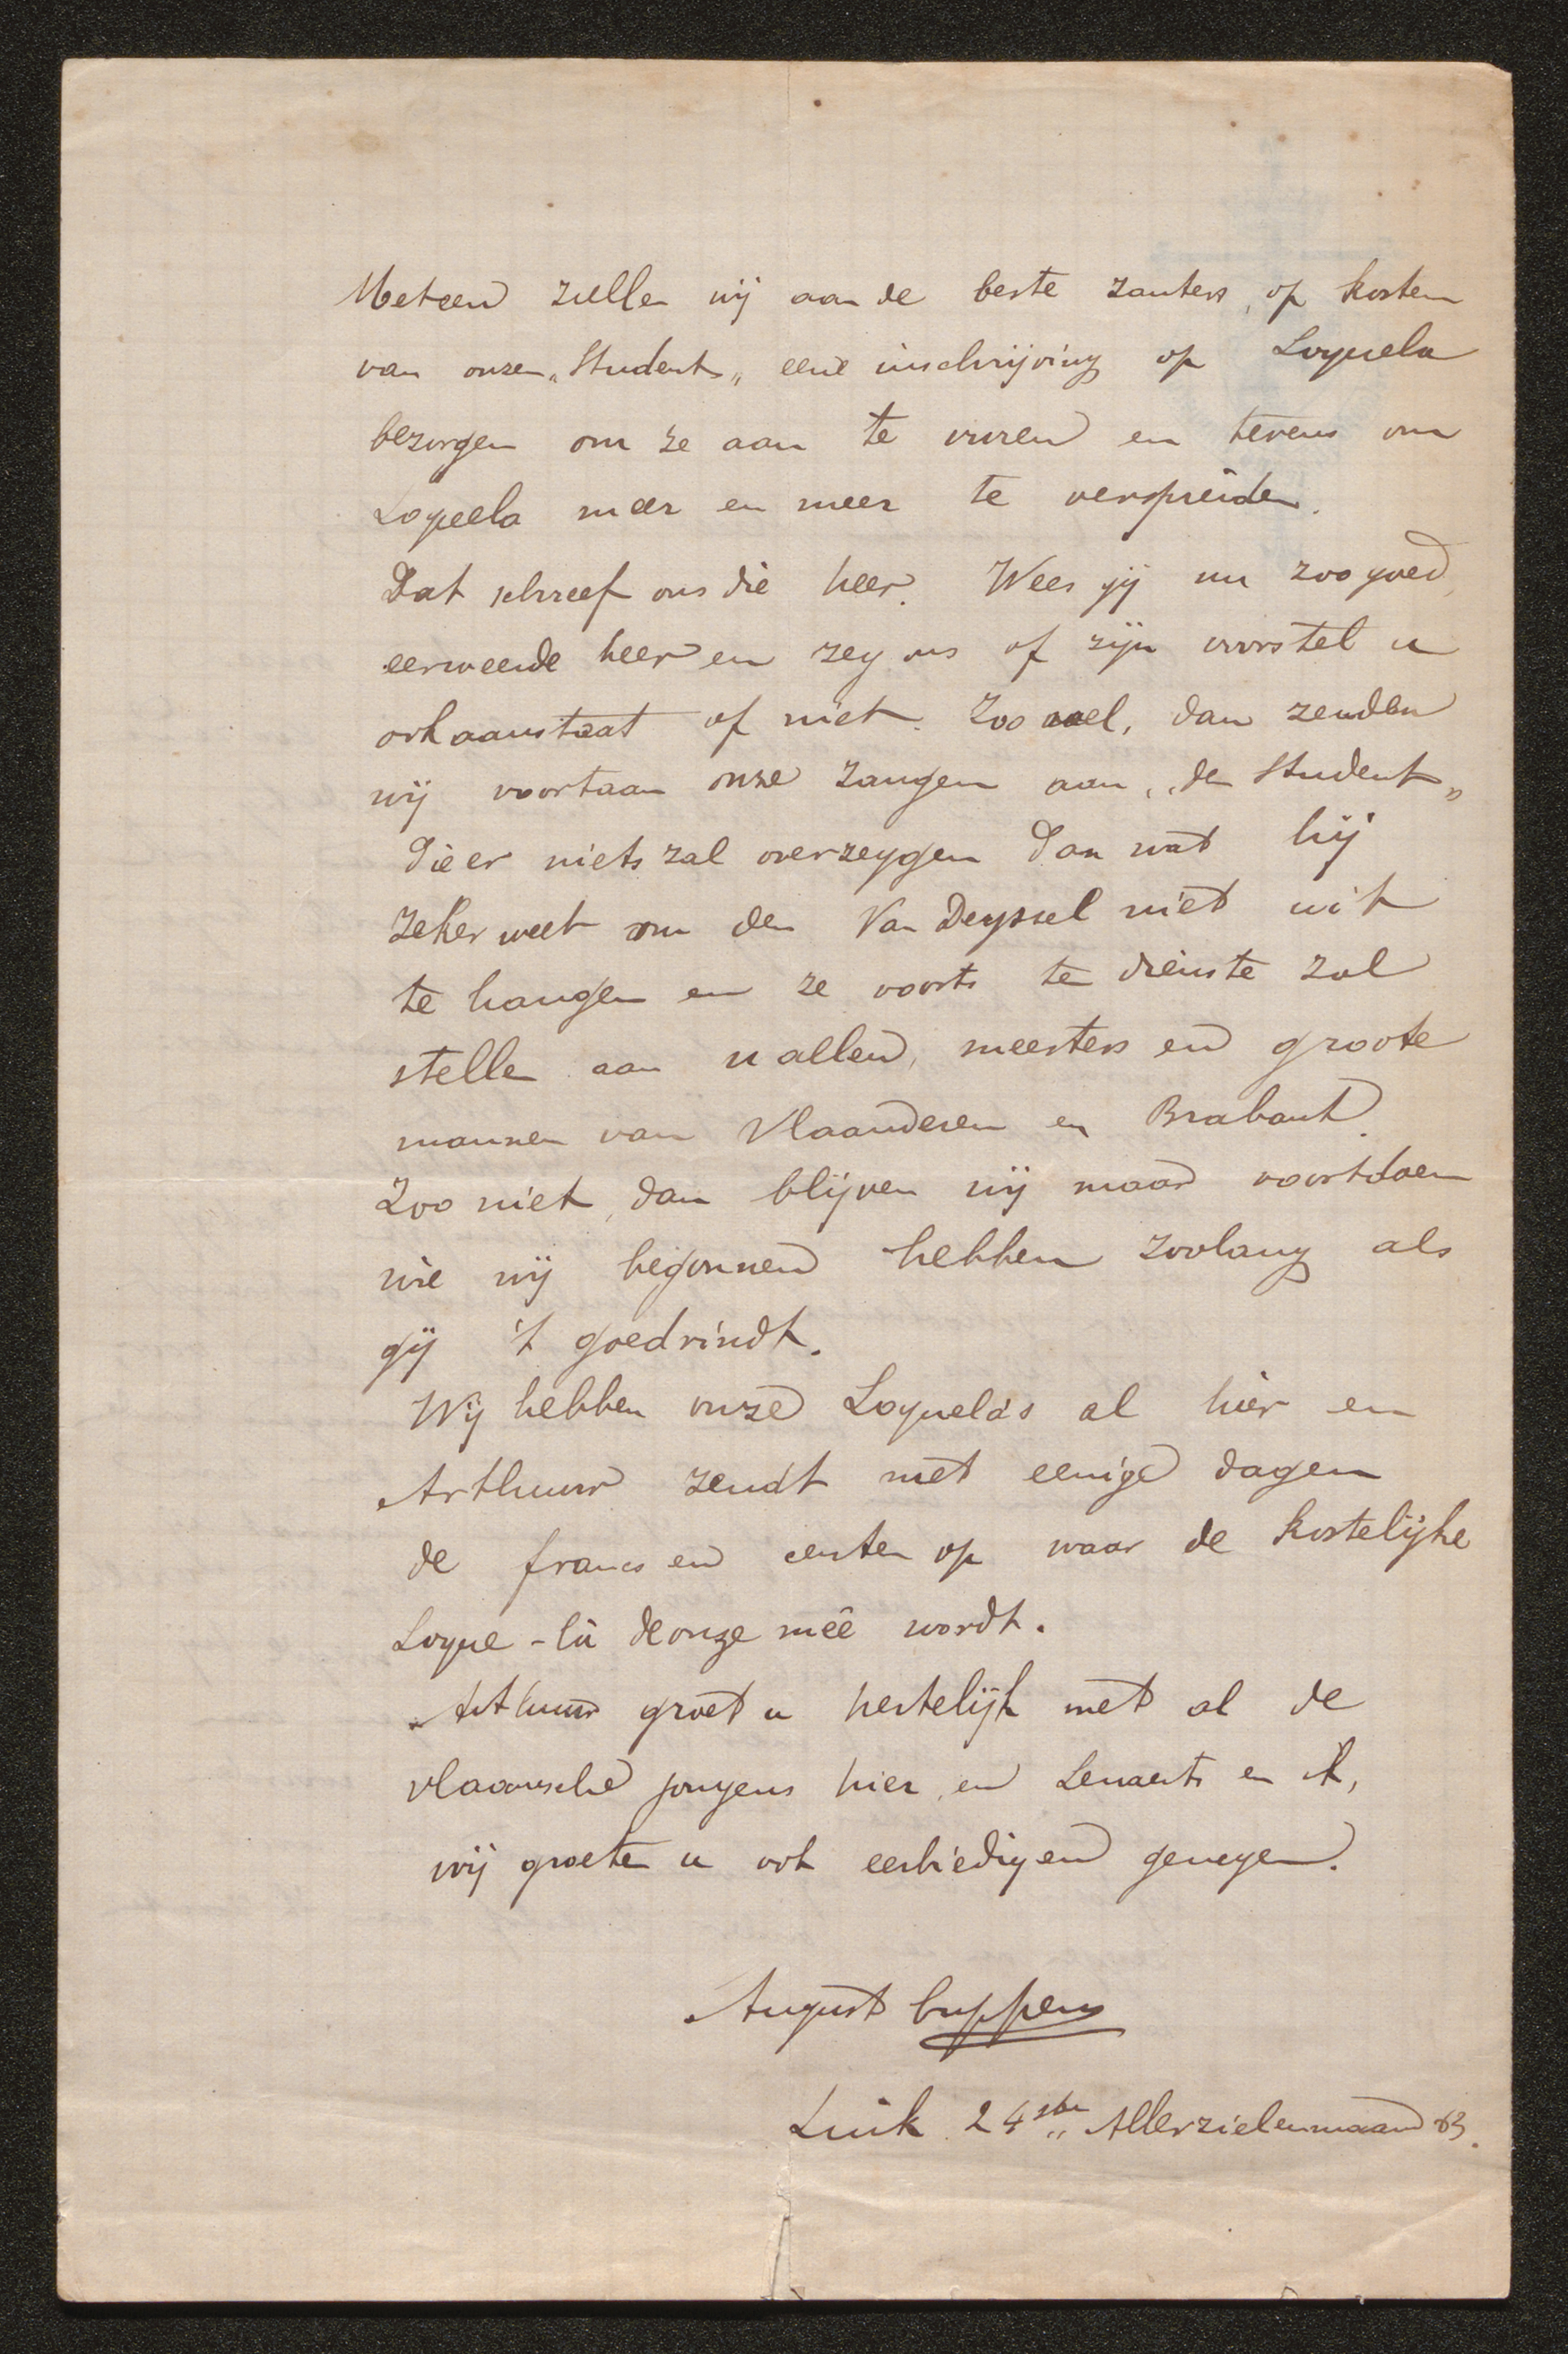 Meteen zullen wij aan de beste zanters, op kosten
van onzen „Student„ eene inschrijving op Loquela
bezorgen om ze aan te vuren en tevens om
Loquela meer en meer te verspreiden.
Dat schreef ons die heer. Wees gij nu zoo goed,
eerweerde heer en zeg ons of zijn voorstel u
ook aanstaat of niet. Zoo wel, dan zenden
wij voortaan onze zangen aan „den Student„
die er niets zal overzeggen dan wat hij
zeker weet om den Van Deyssel niet uit
te hangen en ze voorts ten dienste zal
stellen aan u allen, meesters en groote
mannen van Vlaanderen en Brabant.
Zoo niet, dan blijven wij maar voortdoen
wie wij begonnen hebben zoolang als
gij 't goedvindt.
Wij hebben onze Loquela's al hier en
Arthuur zendt met eenige dagen
de francs en centen op waar de kostelijke
Loque-la de onze meê wordt.
Arthuur groet u hertelijk met al de
vlaamsche jongens hier, en Lenaerts en ik,
wij groeten u ook eerbiedig en genegen.
August Cuppens
Luik 24ste Allerzielenmaand 83.